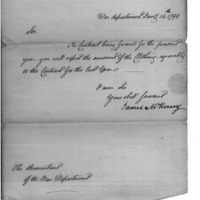 War department Jany 12th 1798
Sir,
No Contract being formed for the present
year you will report the amount of the Clothing, agreeably
to the Contract for the last Year.
I am Sir
Your Obed Servant
James McHenry
The Accountant
of the War Department